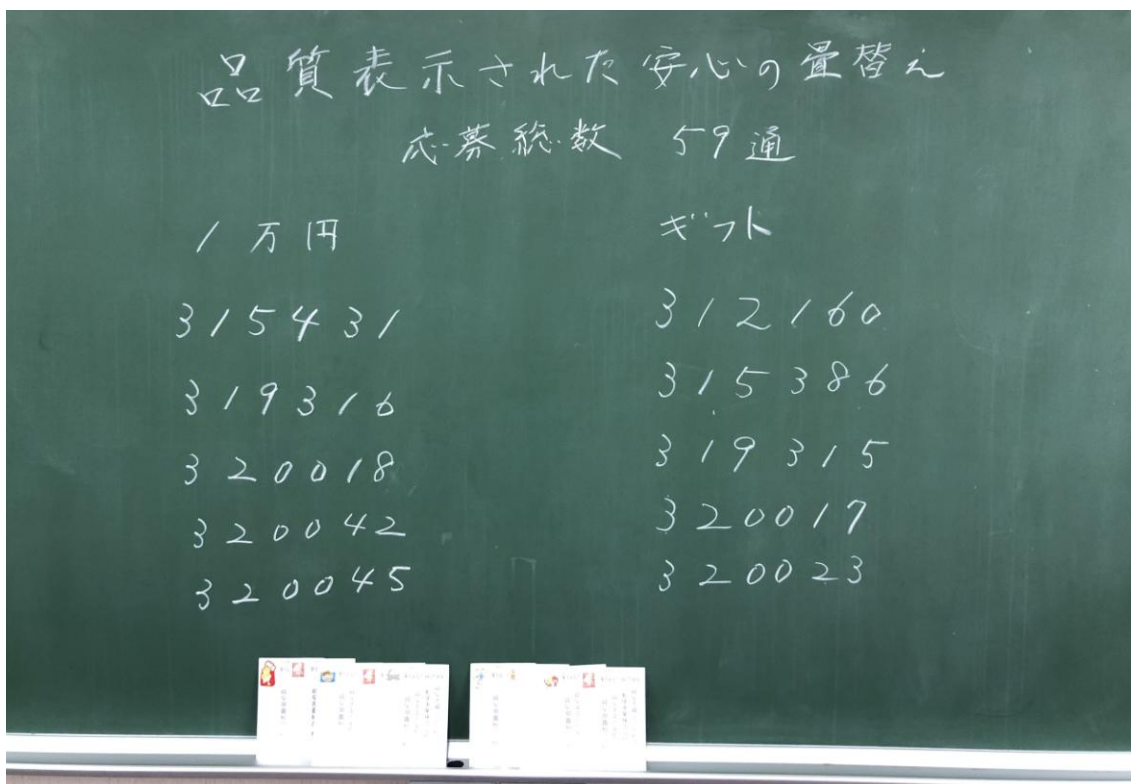 品質表示された安心の畳替え
応募総数 59通
1万円
315431
319316
320018
320042
320045
ギフト
312160
315386
319315
320017
320023